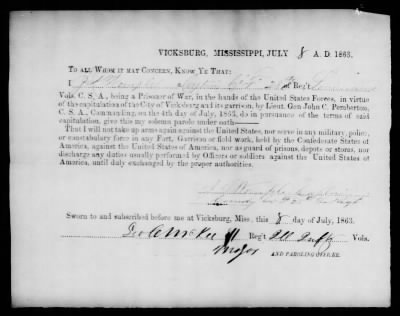 VICKSBURG, MISSISSIPPI, JULY 8 A. D. 1863.
TO ALL WHOM IT MAY CONCERN, KNOW YE THAT:
I of Reg't
Vols. C. S. A., being a Prisoner of War, in the hands of the United States Forces, in virtue
of the capitulation of the City of Vicksburg and its garrison, by Lieut. Gen John C. Pemberton,
C. S. A., Commanding, on the 4th day of July, 1863, do in pursuance of the terms of said
capitulation, give this my solemn parole under oath—
That I will not take up arms again against the United States, nor serve in any military, police,
or constabulary force in any Fort, Garrison or field work, held by the Confederate States of
America, against the United States of America, nor as guard of prisons, depots or stores, nor
discharge any duties usually performed by Officers or soldiers against the United States of
America, until duly exchanged by the proper authorities.
Sworn to and subscribed before me at Vicksburg, Miss. this 8 day of July, 1863.
Reg't Ill Vols.
Major AND PAROLING OFFICER.